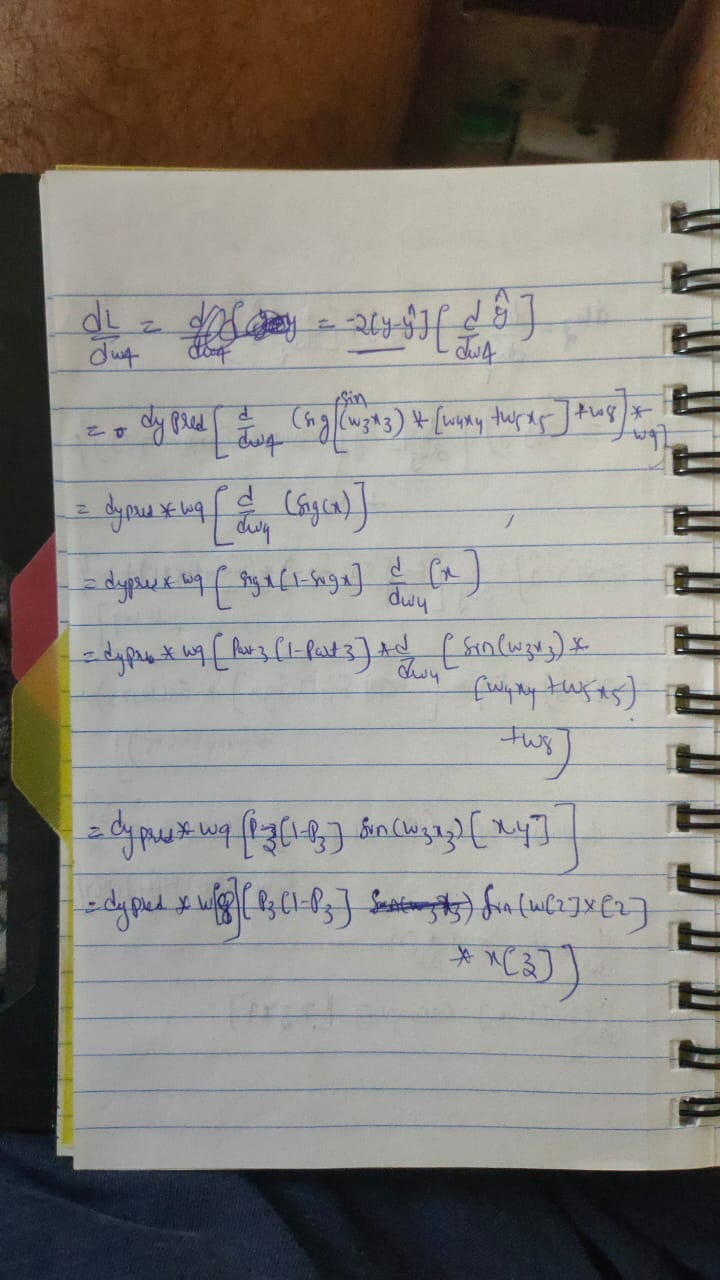 dL/dw4 = = -2(y-ŷ)[d/dw4 ŷ]
= dypred[d/dw4 (sig[sin(w3x3) * [w4x4 + w5x5] + w8] * w9]
= dypred * w9 [d/dw4 (sig(x)]
= dypred * w9 [sigx[1-sigx] d/dw4 [x]
= dypre * w9 [Part3(1-Part3] * d/dw4 [sin(w3x3) *
[w4x4 + w5x5)
+w8]
= dypred * w9 [P3[1-P3] sin(w3x3)[x4]]
= dypred * w[8][P3(1-P3] sin(w[2]x[2]
* x[3]]